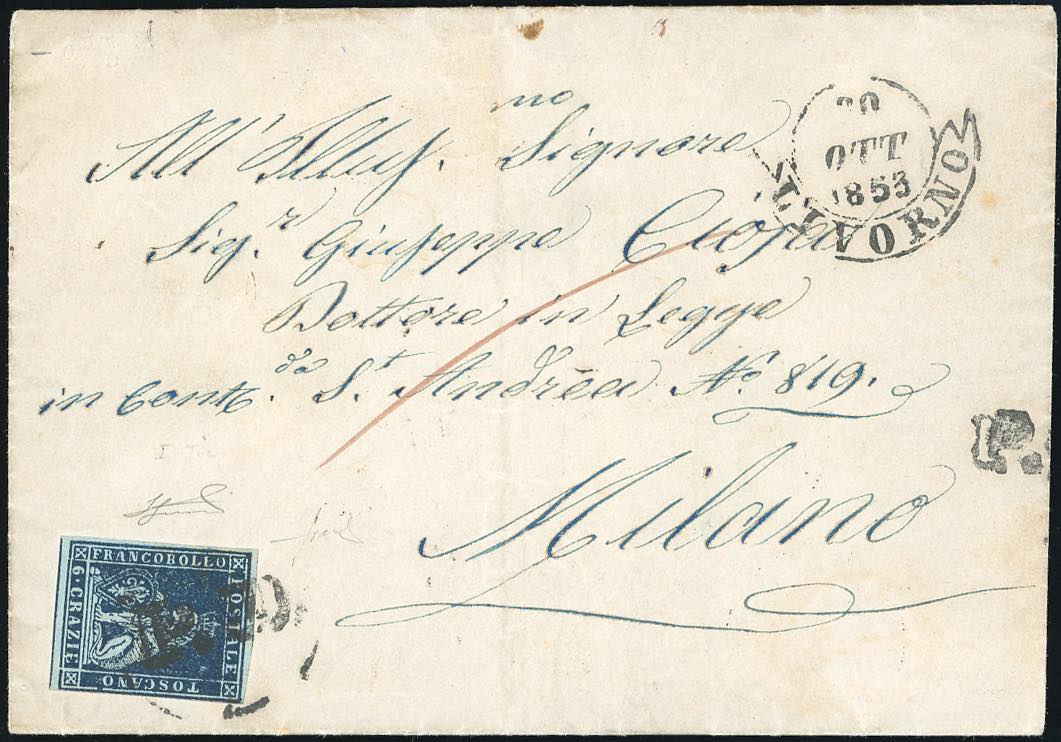 All' Illus.mo Signore
Sig.r Giuseppe Cioja
Dottore in Legge
in Cont.da S.t Andrea No. 819.
Milano
20
OTT
1853
LIVORNO
P.
FRANCOBOLLO
POSTALE
TOSCANO
6·CRAZIE
P.D